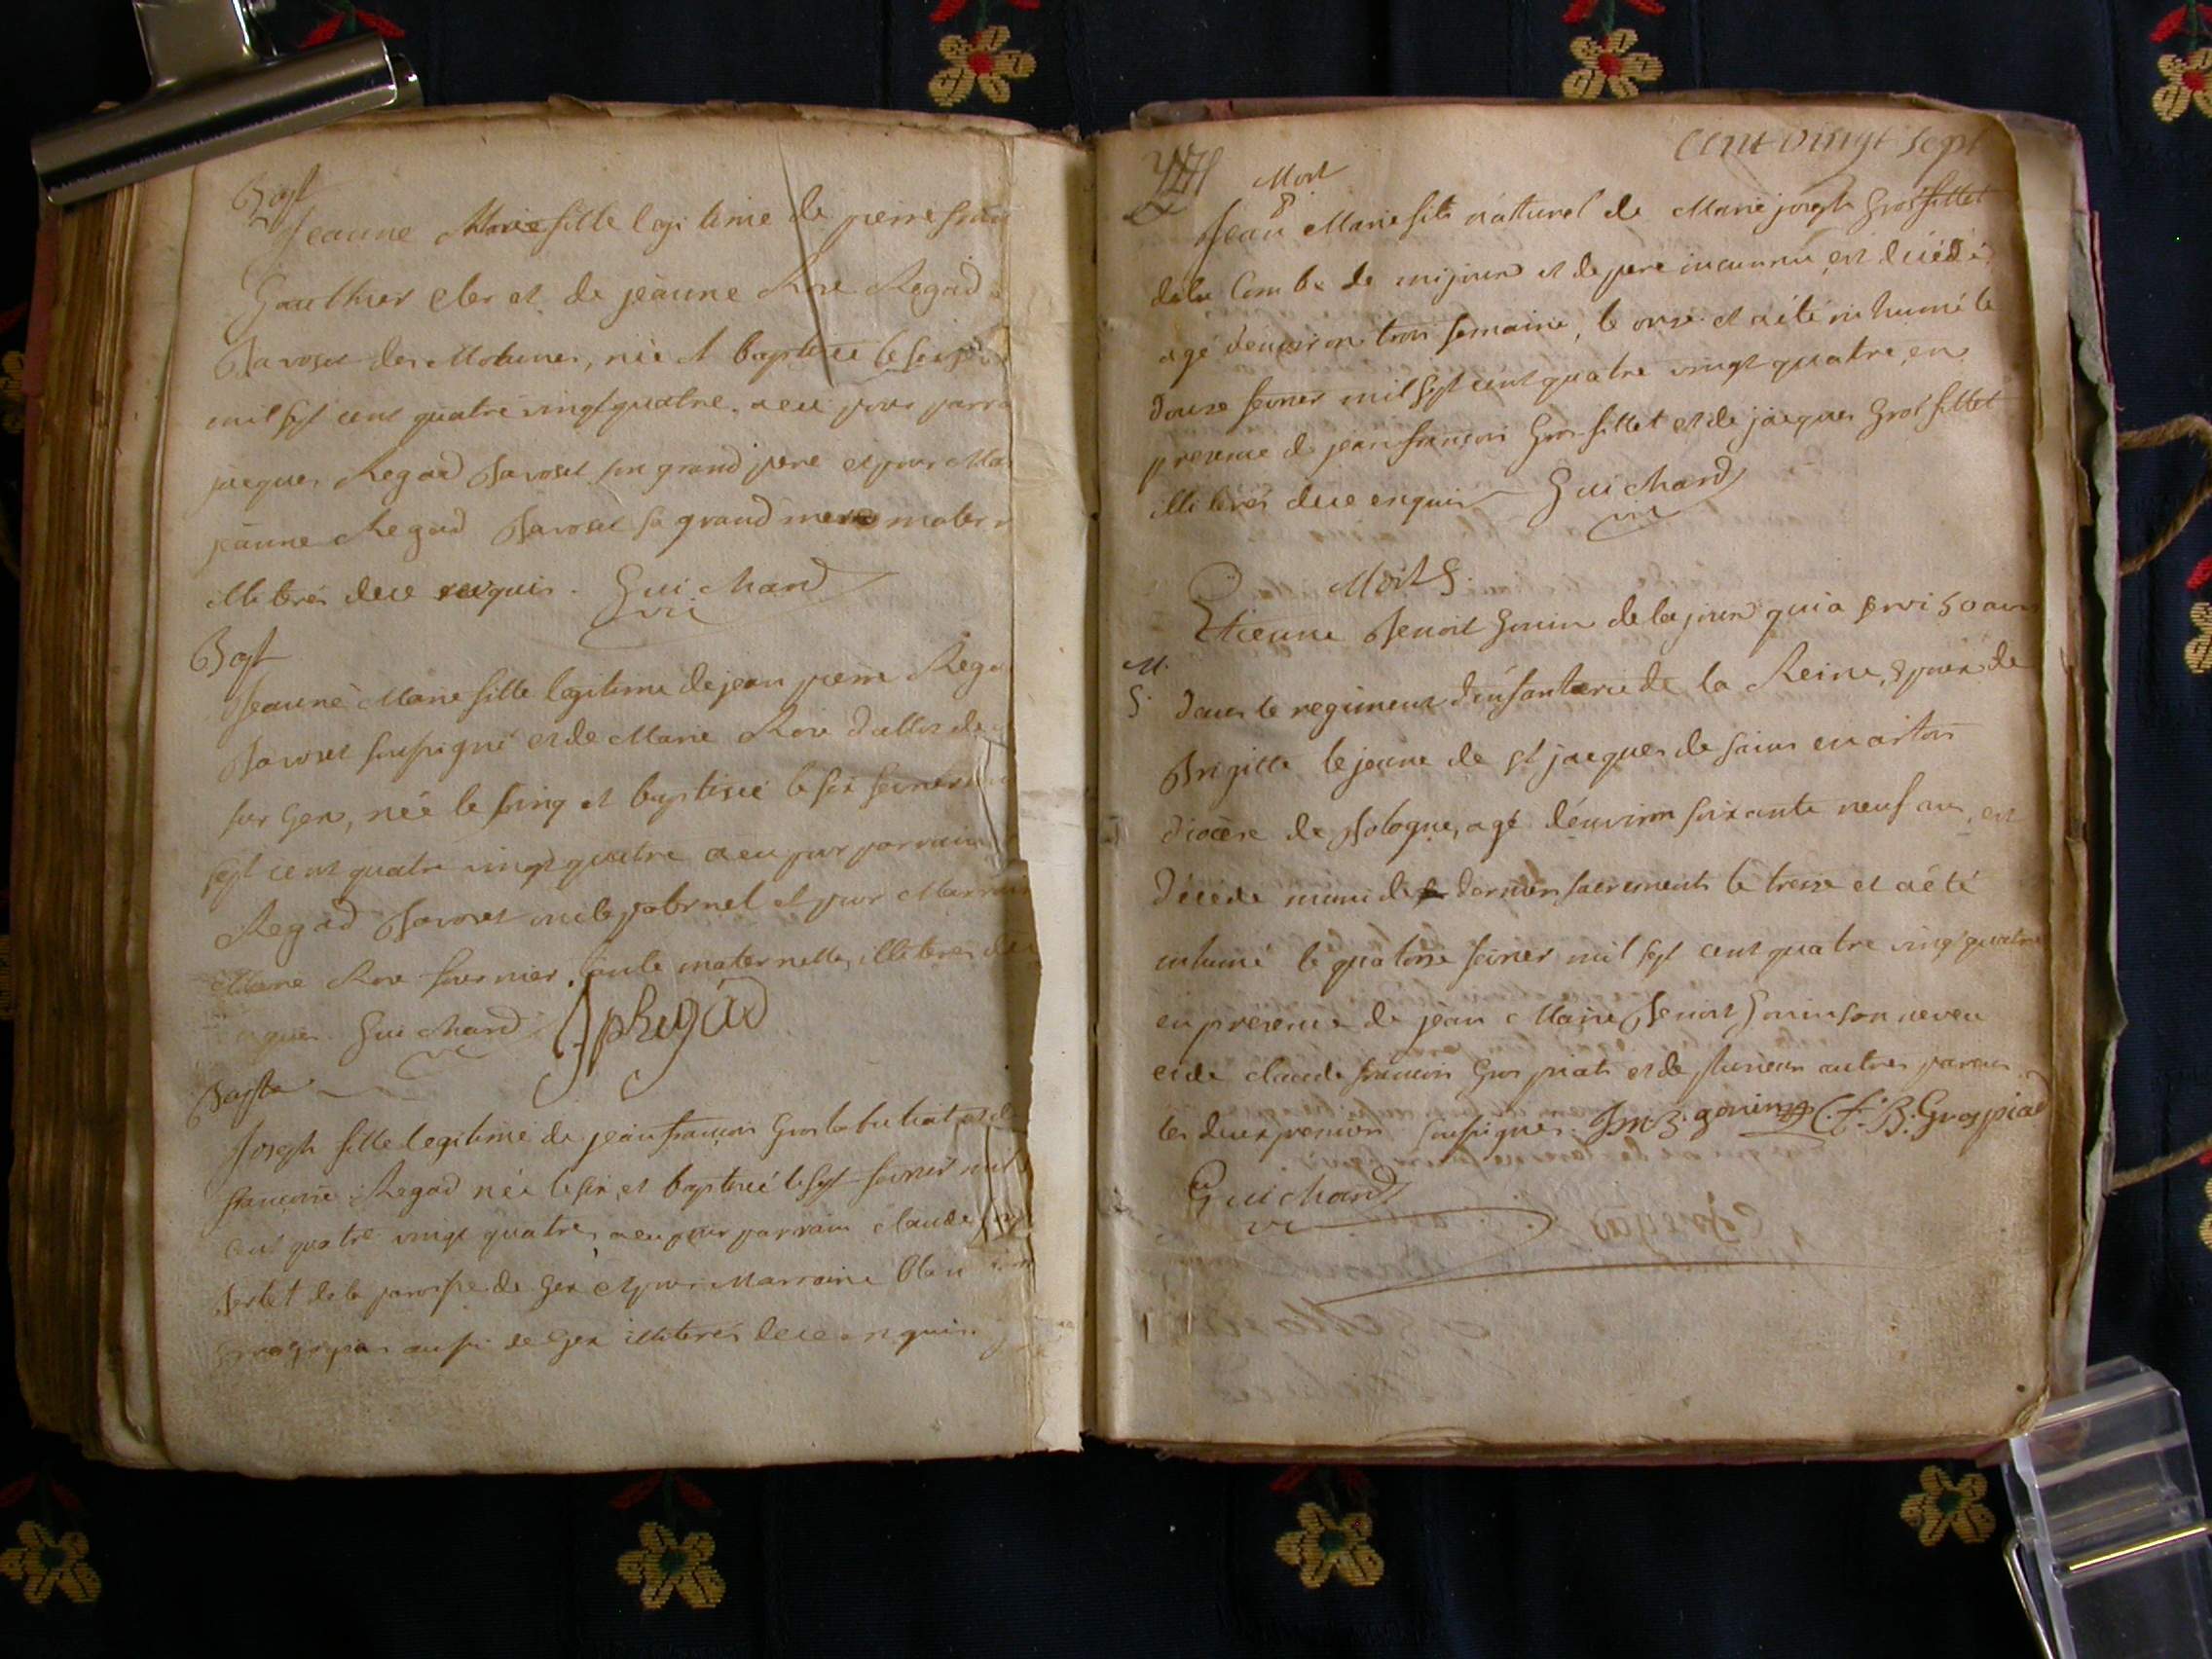 Bapt
Jeanne Marie fille legitime de pierre
Gauthier Cler et de jeanne Rose Regad
Bavoset des Molunes, née et baptisée le six
mil sept cent quatre vingt quatre, a eu pour
jacques Regad Bavoset son grand pere et pour
jeanne Regad Bavoset sa grand mere
illiterés deue enquis. Guichard
vic
Bapt
Jeanne Marie fille legitime de jean pierre
Bavoset soussigné et de Marie Rose
sur Gex, née le sinq et baptisée le six fevrier
sept cent quatre vingt quatre a eu pour parrain
Regad Bavoset oncle paternel et pour
Marie Rose fournier, tante maternelle, illiteres
Guichard JpRegad
vic
Joseph fille legitime de jean françois Gros
françoise Regad née le six, et baptisée le sept fevrier mil
cent quatre vingt quatre, a eu pour parrain claude
de la paroisse de Gex et pour Marraine
aussi de Gex illiterés deue enquis
Cent vingt sept
127 Mort
8
Jean Marie fils naturel de Marie joseph Grosfillet
de la Combe de mijoux et de pere inconnu, est decédé
agé d'environ trois semaine, le onze et a été inhumé le
douze fevrier mil sept cent quatre vingt quatre, en
presence de jean françois Gros-fillet et de jacques Grosfillet
illiterés deue enquis Guichard
vic
Mort 5.
Etienne Benoit Gonin de lajoux qui a servi 50 ans
M.
5. dans le regiment d'infanterie de la Reine, Epoux de
Brigitte lejeune de st jacques de
diocèse de Bologne, agé d'environ soixante neuf ans, est
décédé muni des derniers sacrements le treize et a été
inhumé le quatorze fevrier mil sept cent quatre vingt quatre
en presence de jean Marie Benoit Gonin son neveu
et de claude françois Gros piats et de plusieurs autres parens
les deux premiers soussignes. Jm B. gonin C. f. B. Grospiad
Guichard
vic